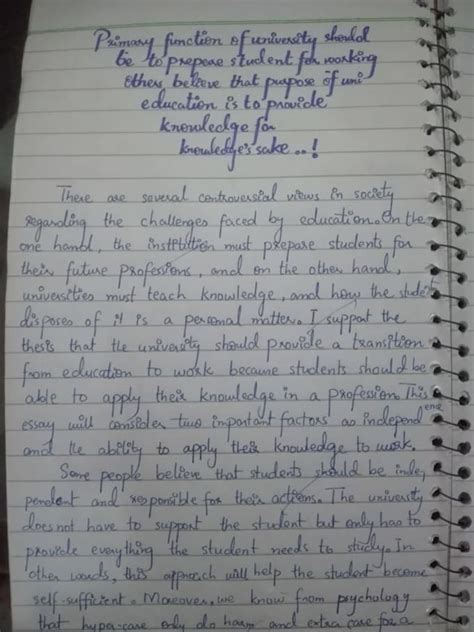 Primary function of university should
be to prepare student for working
Others believe that purpose of uni
education is to provide
knowledge for
knowledge's sake ..!
There are several controversial views in society
regarding the challenges faced by education. On the
one hand, the institution must prepare students for
their future professions, and on the other hand,
universities must teach knowledge, and how the student
disposes of it is a personal matter. I support the
thesis that the university should provide a transition
from education to work because students should be
able to apply their knowledge in a profession. This
essay will consider two important factors as independence
and the ability to apply their knowledge to work.
Some people believe that students should be inde
pendent and responsible for their actions. The university
does not have to support the student but only has to
provide everything the student needs to study. In
other words, this approach will help the student become
self-sufficient. Moreover, we know from psychology
that hyper-care only do harm and extra care for a